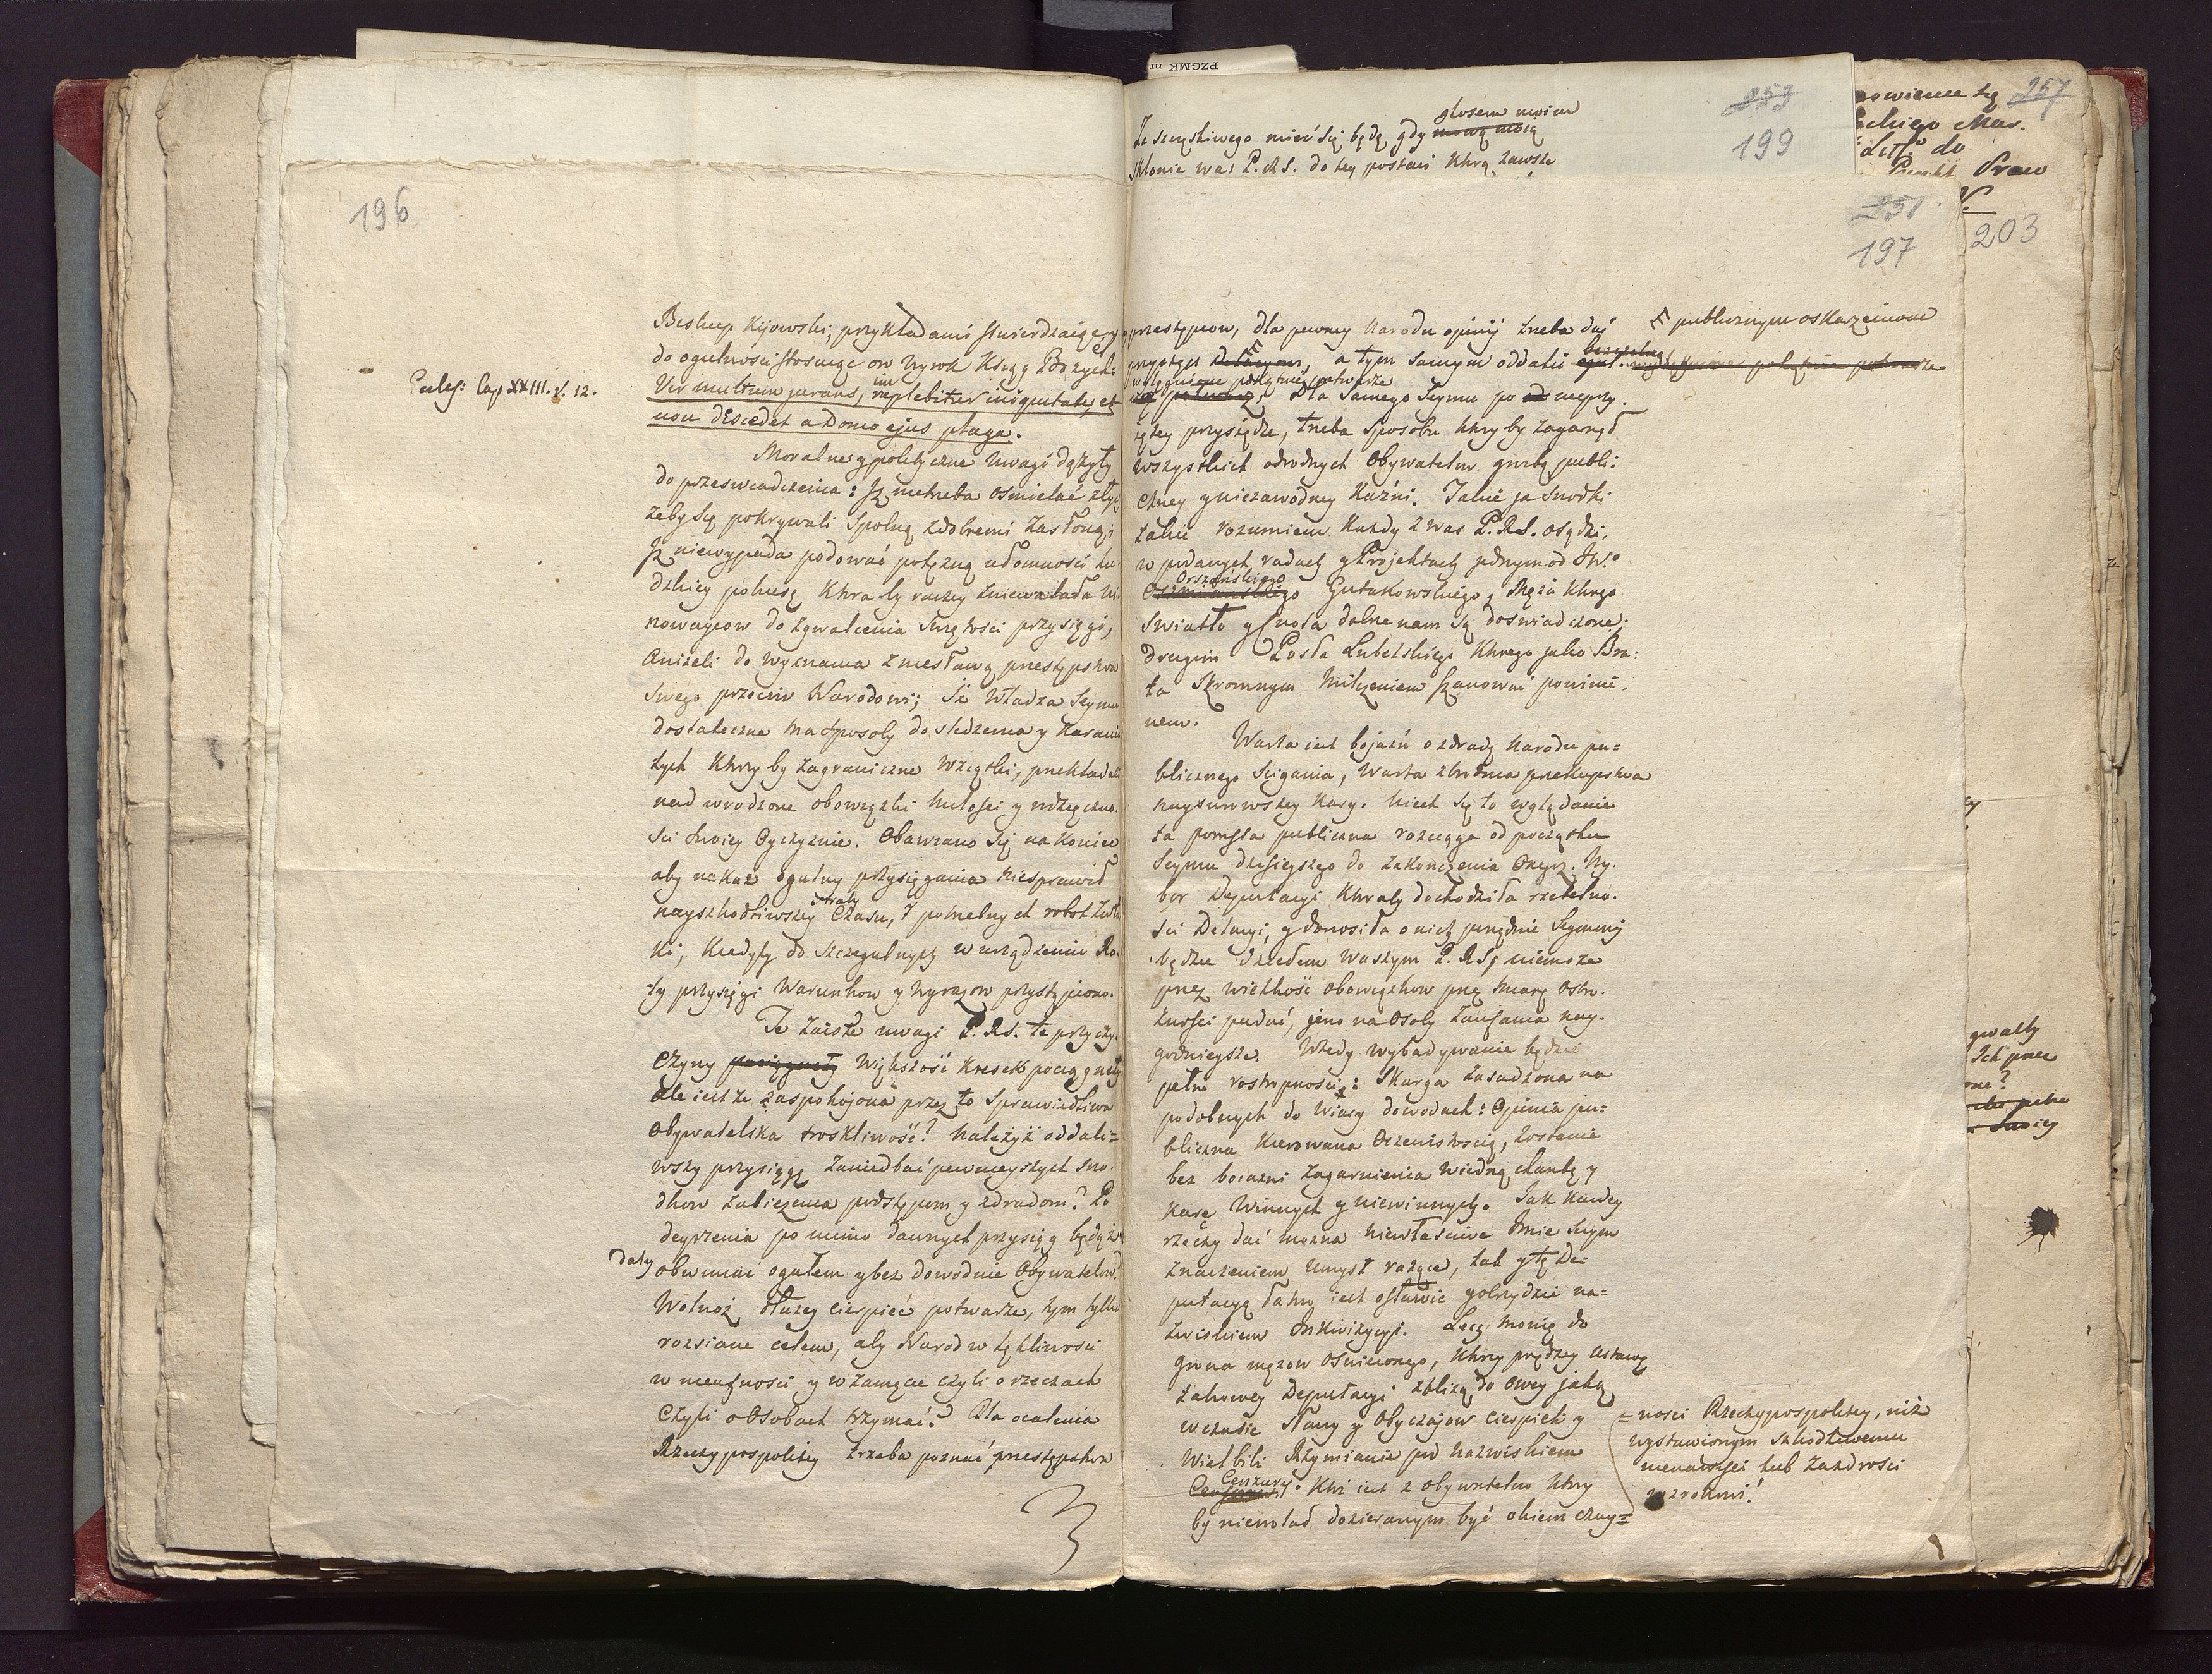 196
Biskup Kijowski, przykładami stwierdzaiąc, y
do ogulności stosuiąc ow wyrok Księg Bozych:
Vir multum jurans, implebitur iniquitate, et
non discedet a Domo ejus plaga.
Cap XXIII. v. 12.
Moralne y polityczne uwagi dążyły
do przeswiadczenia: Iż nietrzeba osmielać złych
żeby się pokrywali spolną z dobremi zasłoną;
Iż niewypada podować potężną ułomności lu-
dzkiey pokusę Khra by raczey zniewalała wi-
nowaycow do zgwałcenia swiętości przysięgi,
Aniżeli do wyznania z niesławą przestępstwa
Swego przeciw Narodowi; Iż Władza Seymu
dostateczne ma sposoby do sledzenia y karania
tych Khrzy by zagraniczne względy, przekładali
nad wrodzone obowiązki miłości y wdzięczno-
ści swoiey Oyczyznie. Obawiano się na koniec
aby nakaz ogulny przysięgania niesprawił
nayszkodliwszey straty Czasu, y potrzebnych robot zwło
ki, kiedyby do szczegulnych w urządzeniu Ro-
ty przysięgi Warunkow y wyrazow przystąpiono.
Te zaiste uwagi P. RS. te przy
czyny pociągnęły większość kresek pociągnęły
Ale iest że zaspokojona przez to sprawiedliwa
Obywatelska troskliwość? Należyż oddali=
wszy przysięgę zaniedbać pewnieyszych śro-
dkow zabieżenia podstępom y zdradom? Po
deyrzenia po mimo dawnych przysiąg będąż
daley obwiniać ogułem y bez dowodnie Obywatelow?
Wolnoż dłużey cierpieć potwarze, tym tylko
rozsiane celem, aby Narod w tękliwości
w nieufności y w zamęcie czyli o rzeczach
czyli o Osobach trzymać? Dla ocalenia
Rzeczypospolitey trzeba poznać przestępstwa
253
199
Za szczęśliwego mieć się będę, gdy mową moią
głosem moim
skłonie was P. RS. do tey postaci Khrą zawsze
251
197
przestępcow, dla pewney Narodu opinij trzeba dać
przystęp delacyom, a tym samym oddalić
publicznym oskarżeniom
bezczelną
potwarze
Dla samego Seymu po nieprzy-
iętey przysiędze, trzeba sposobu Khry by zagarnął
wszystkich odrodnych Obywatelow groźbą publi-
czney y niezawodney Kaźni. Takie ja środki
takie rozumiem Kazdy z was P. RS. osądzi,
w podanych radach y Projektach jednym od JW.o
Oszmiańskiego Gutakowskiego, Męża Khrego
Orszańskiego
Swiatło y cnota dobrze nam są doswiadczone;
drugim Posła Lubelskiego Khrego jako Bra-
ta Skromnym milczeniem szanować powini-
nem.
Warta iest bojaźń o zdradę Narodu pu-
blicznego ścigania, Warta zbrodnia przekupstwa
naysurowszey kary. Niech się to wglądanie
ta pomsta publiczna rozciąga od początku
Seymu dzisieyszego do zakończenia onegoż. Wy-
bor Deputacyi Khraby dochodziła rzetelno-
ści Delacyi, y donosiła o nich porządnie Seymowi
będzie dziełem waszym P. RS, niemoże
przez wielkość obowiązkow przez miarę Ostro-
żności padać, jeno na Osoby zaufania nay-
godnieysze. Wtedy wybadywanie będzie
pełne rostropności: Skarga zasadzona na
podobnych do wiary dowodach: Opinia pu-
bliczna kierowana Oczewistością, zostanie
bez boiazni zagarnienia w iedną chańbę y
karę Winnych y niewinnych. Jak każdey
rzeczy dać można niewłaściwe Imie swym
Znaczeniem umysł rażące, tak y tę De-
putacyę łatwo iest osławić y ohydzić na-
zwiskiem Inkwizycyi. Lecz mowię do
grona mężow oświeconego, Khrzy prędzey ustawę
takowey Deputacyi zbliżą do owey jaką
w czasie sławy y obyczajow cierpieli y
Wielbili Rzymianie pod nazwiskiem
Cenzury. Khż iest z obywatelow Khry
by niewolał dozieranym być okiem czuy=
=ności Rzeczypospolitey, niż
wystawionym szkodliwemu
nienawiści lub zazdrości
wzrokowi!
257
203